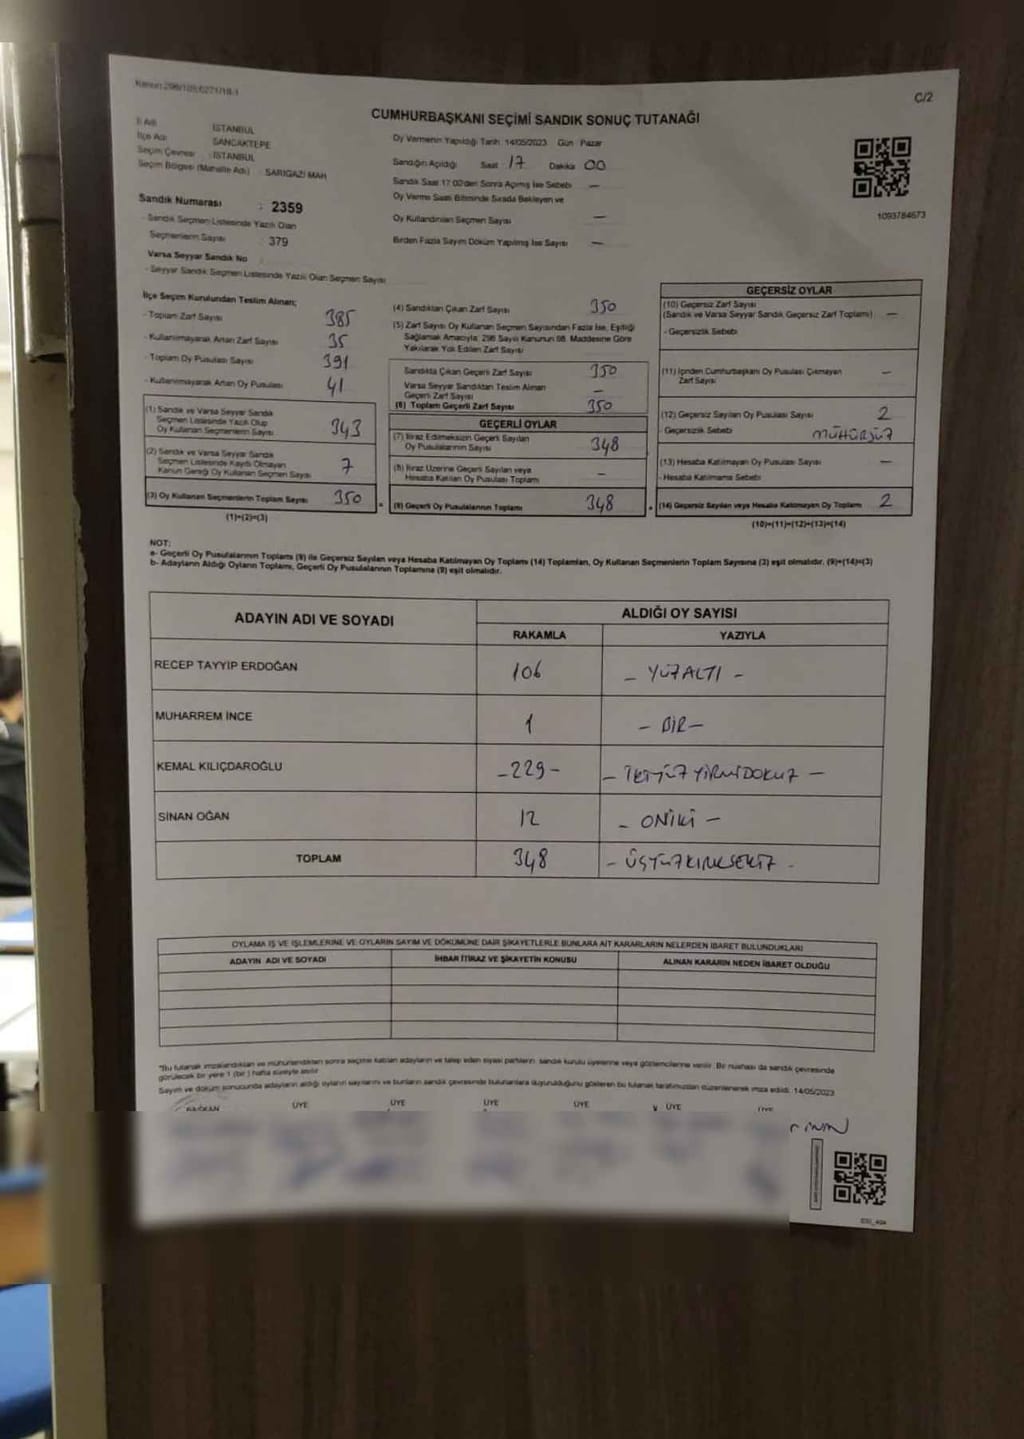 C/2
CUMHURBAŞKANI SEÇİMİ SANDIK SONUÇ TUTANAĞI
İl Adı : İSTANBUL
İlçe Adı : SANCAKTEPE
Seçim Çevresi : İSTANBUL
Seçim Bölgesi (Mahalle Adı) : SARIGAZİ MAH
Sandık Numarası : 2359
- Sandık Seçmen Listesinde Yazılı Olan
Seçmenlerin Sayısı : 379
Varsa Seyyar Sandık No
- Seyyar Sandık Seçmen Listesinde Yazılı Olan Seçmen Sayısı
Oy Vermenin Yapıldığı Tarih 14/05/2023 Gün Pazar
Sandığın Açıldığı Saat 17 Dakika 00
Sandık Saat 17:00'den Sonra Açılmış İse Sebebi —
Oy Verme Saati Bitiminde Sırada Bekleyen ve
Oy Kullandırılan Seçmen Sayısı —
Birden Fazla Sayım Döküm Yapılmış İse Sayısı —
1093784673
İlçe Seçim Kurulundan Teslim Alınan;
- Toplam Zarf Sayısı 385
- Kullanılmayarak Artan Zarf Sayısı 35
- Toplam Oy Pusulası Sayısı 391
- Kullanılmayarak Artan Oy Pusulası 41
(1) Sandık ve Varsa Seyyar Sandık
Seçmen Listesinde Yazılı Olup
Oy Kullanan Seçmenlerin Sayısı 343
(2) Sandık ve Varsa Seyyar Sandık
Seçmen Listesinde Kayıtlı Olmayan
Kanun Gereği Oy Kullanan Seçmen Sayısı 7
(3) Oy Kullanan Seçmenlerin Toplam Sayısı 350
(1)+(2)=(3)
(4) Sandıktan Çıkan Zarf Sayısı 350
(5) Zarf Sayısı Oy Kullanan Seçmen Sayısından Fazla İse, Eşitliği
Sağlamak Amacıyla, 298 Sayılı Kanunun 98. Maddesine Göre
Yakılarak Yok Edilen Zarf Sayısı
Sandıkta Çıkan Geçerli Zarf Sayısı 350
Varsa Seyyar Sandıktan Teslim Alınan
Geçerli Zarf Sayısı —
(6) Toplam Geçerli Zarf Sayısı 350
GEÇERLİ OYLAR
(7) İtiraz Edilmeksizin Geçerli Sayılan
Oy Pusulalarının Sayısı 348
(8) İtiraz Üzerine Geçerli Sayılan veya
Hesaba Katılan Oy Pusulası Toplamı —
(9) Geçerli Oy Pusulalarının Toplamı 348
GEÇERSİZ OYLAR
(10) Geçersiz Zarf Sayısı
(Sandık ve Varsa Seyyar Sandık Geçersiz Zarf Toplamı) —
- Geçersizlik Sebebi
(11) İçinden Cumhurbaşkanı Oy Pusulası Çıkmayan
Zarf Sayısı —
(12) Geçersiz Sayılan Oy Pusulası Sayısı 2
- Geçersizlik Sebebi MÜHÜRSÜZ
(13) Hesaba Katılmayan Oy Pusulası Sayısı —
- Hesaba Katılmama Sebebi
(14) Geçersiz Sayılan veya Hesaba Katılmayan Oy Toplamı 2
(10)+(11)+(12)+(13)=(14)
NOT:
a- Geçerli Oy Pusulalarının Toplamı (9) ile Geçersiz Sayılan veya Hesaba Katılmayan Oy Toplamı (14) Toplamları, Oy Kullanan Seçmenlerin Toplam Sayısına (3) eşit olmalıdır. (9)+(14)=(3)
b- Adayların Aldığı Oyların Toplamı, Geçerli Oy Pusulalarının Toplamına (9) eşit olmalıdır.
ADAYIN ADI VE SOYADI ALDIĞI OY SAYISI
RAKAMLA YAZIYLA
RECEP TAYYIP ERDOĞAN 106 – YÜZALTI –
MUHARREM İNCE 1 – BİR –
KEMAL KILIÇDAROĞLU –229– – İKİYÜZ YİRMİDOKUZ –
SİNAN OĞAN 12 – ONİKİ –
TOPLAM 348 – ÜÇYÜZKIRKSEKİZ –
OYLAMA İŞ VE İŞLEMLERİNE VE OYLARIN SAYIM VE DÖKÜMÜNE DAİR ŞİKAYETLERLE BUNLARA AİT KARARLARIN NELERDEN İBARET BULUNDUKLARI
ADAYIN ADI VE SOYADI İHBAR İTİRAZ VE ŞİKAYETİN KONUSU ALINAN KARARIN NEDEN İBARET OLDUĞU
"Bu tutanak imzalandıktan ve mühürlendikten sonra seçime katılan adayların ve talep eden siyasi partilerin sandık kurulu üyelerine veya gözlemcilerine verilir. Bir nüshası da sandık çevresinde
görülecek bir yere 1 (bir) hafta süreyle asılır
Sayım ve döküm sonucunda adayların aldığı oyların sayılarını ve bunların sandık çevresinde bulunanlara duyurulduğunu gösteren bu tutanak tarafımızdan düzenlenerek imza edildi. 14/05/2023
BAŞKAN ÜYE ÜYE ÜYE ÜYE ÜYE ÜYE